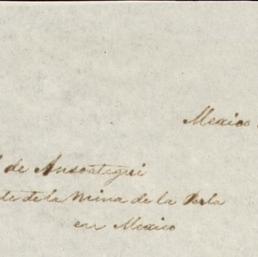 Mexico
de Ansoategui
de la Mina de la Perla
en Mexico